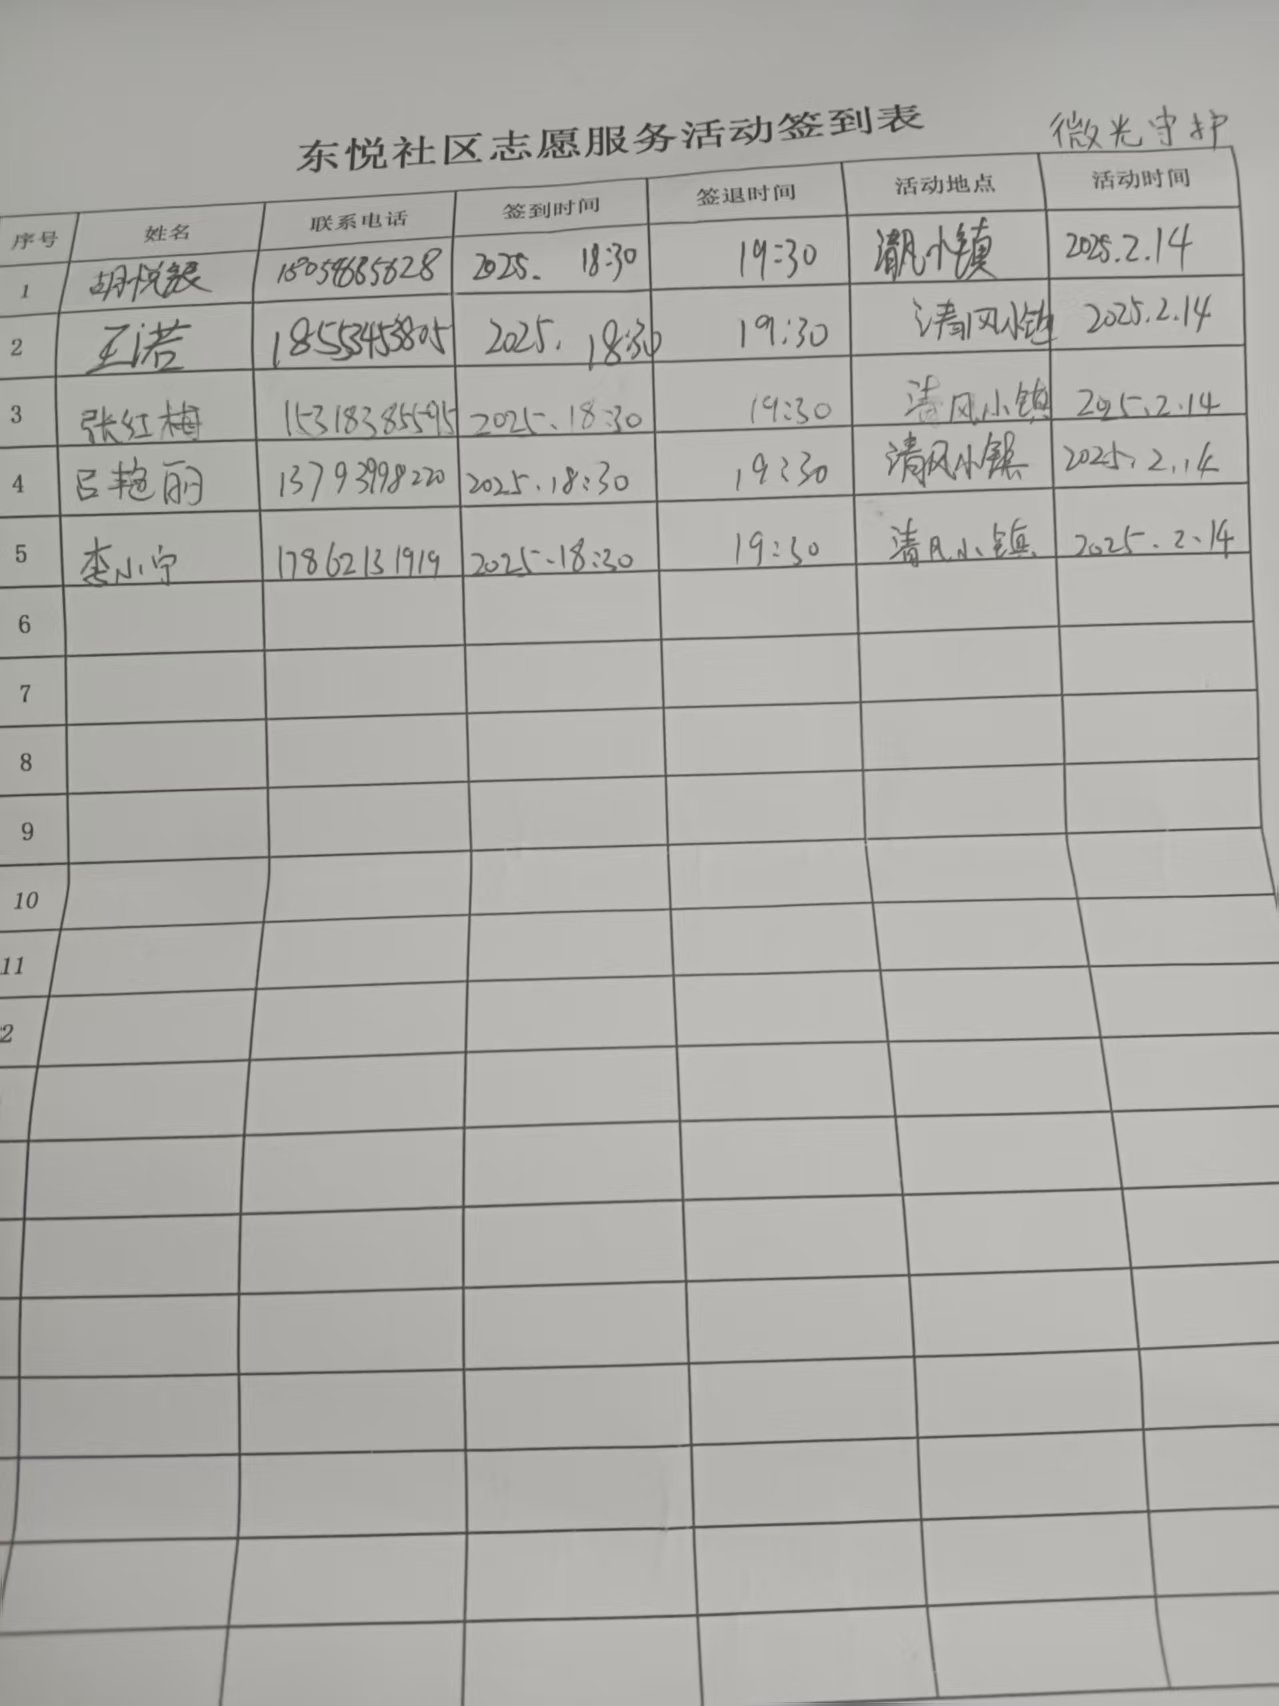 东悦社区志愿服务活动签到表 微光守护
序号 姓名 联系电话 签到时间 签退时间 活动地点 活动时间
1 胡悦银 2025. 18:30 19:30 清风小镇 2025.2.14
2 王诺 18553453805 2025. 18:30 19:30 清风小镇 2025.2.14
3 张红梅 15318385595 2025.18:30 19:30 清风小镇 2025.2.14
4 吕艳丽 13793998220 2025.18:30 19:30 清风小镇 2025.2.14
5 李小宁 17862131919 2025.18:30 19:30 清风小镇 2025.2.14
6
7
8
9
10
11
2